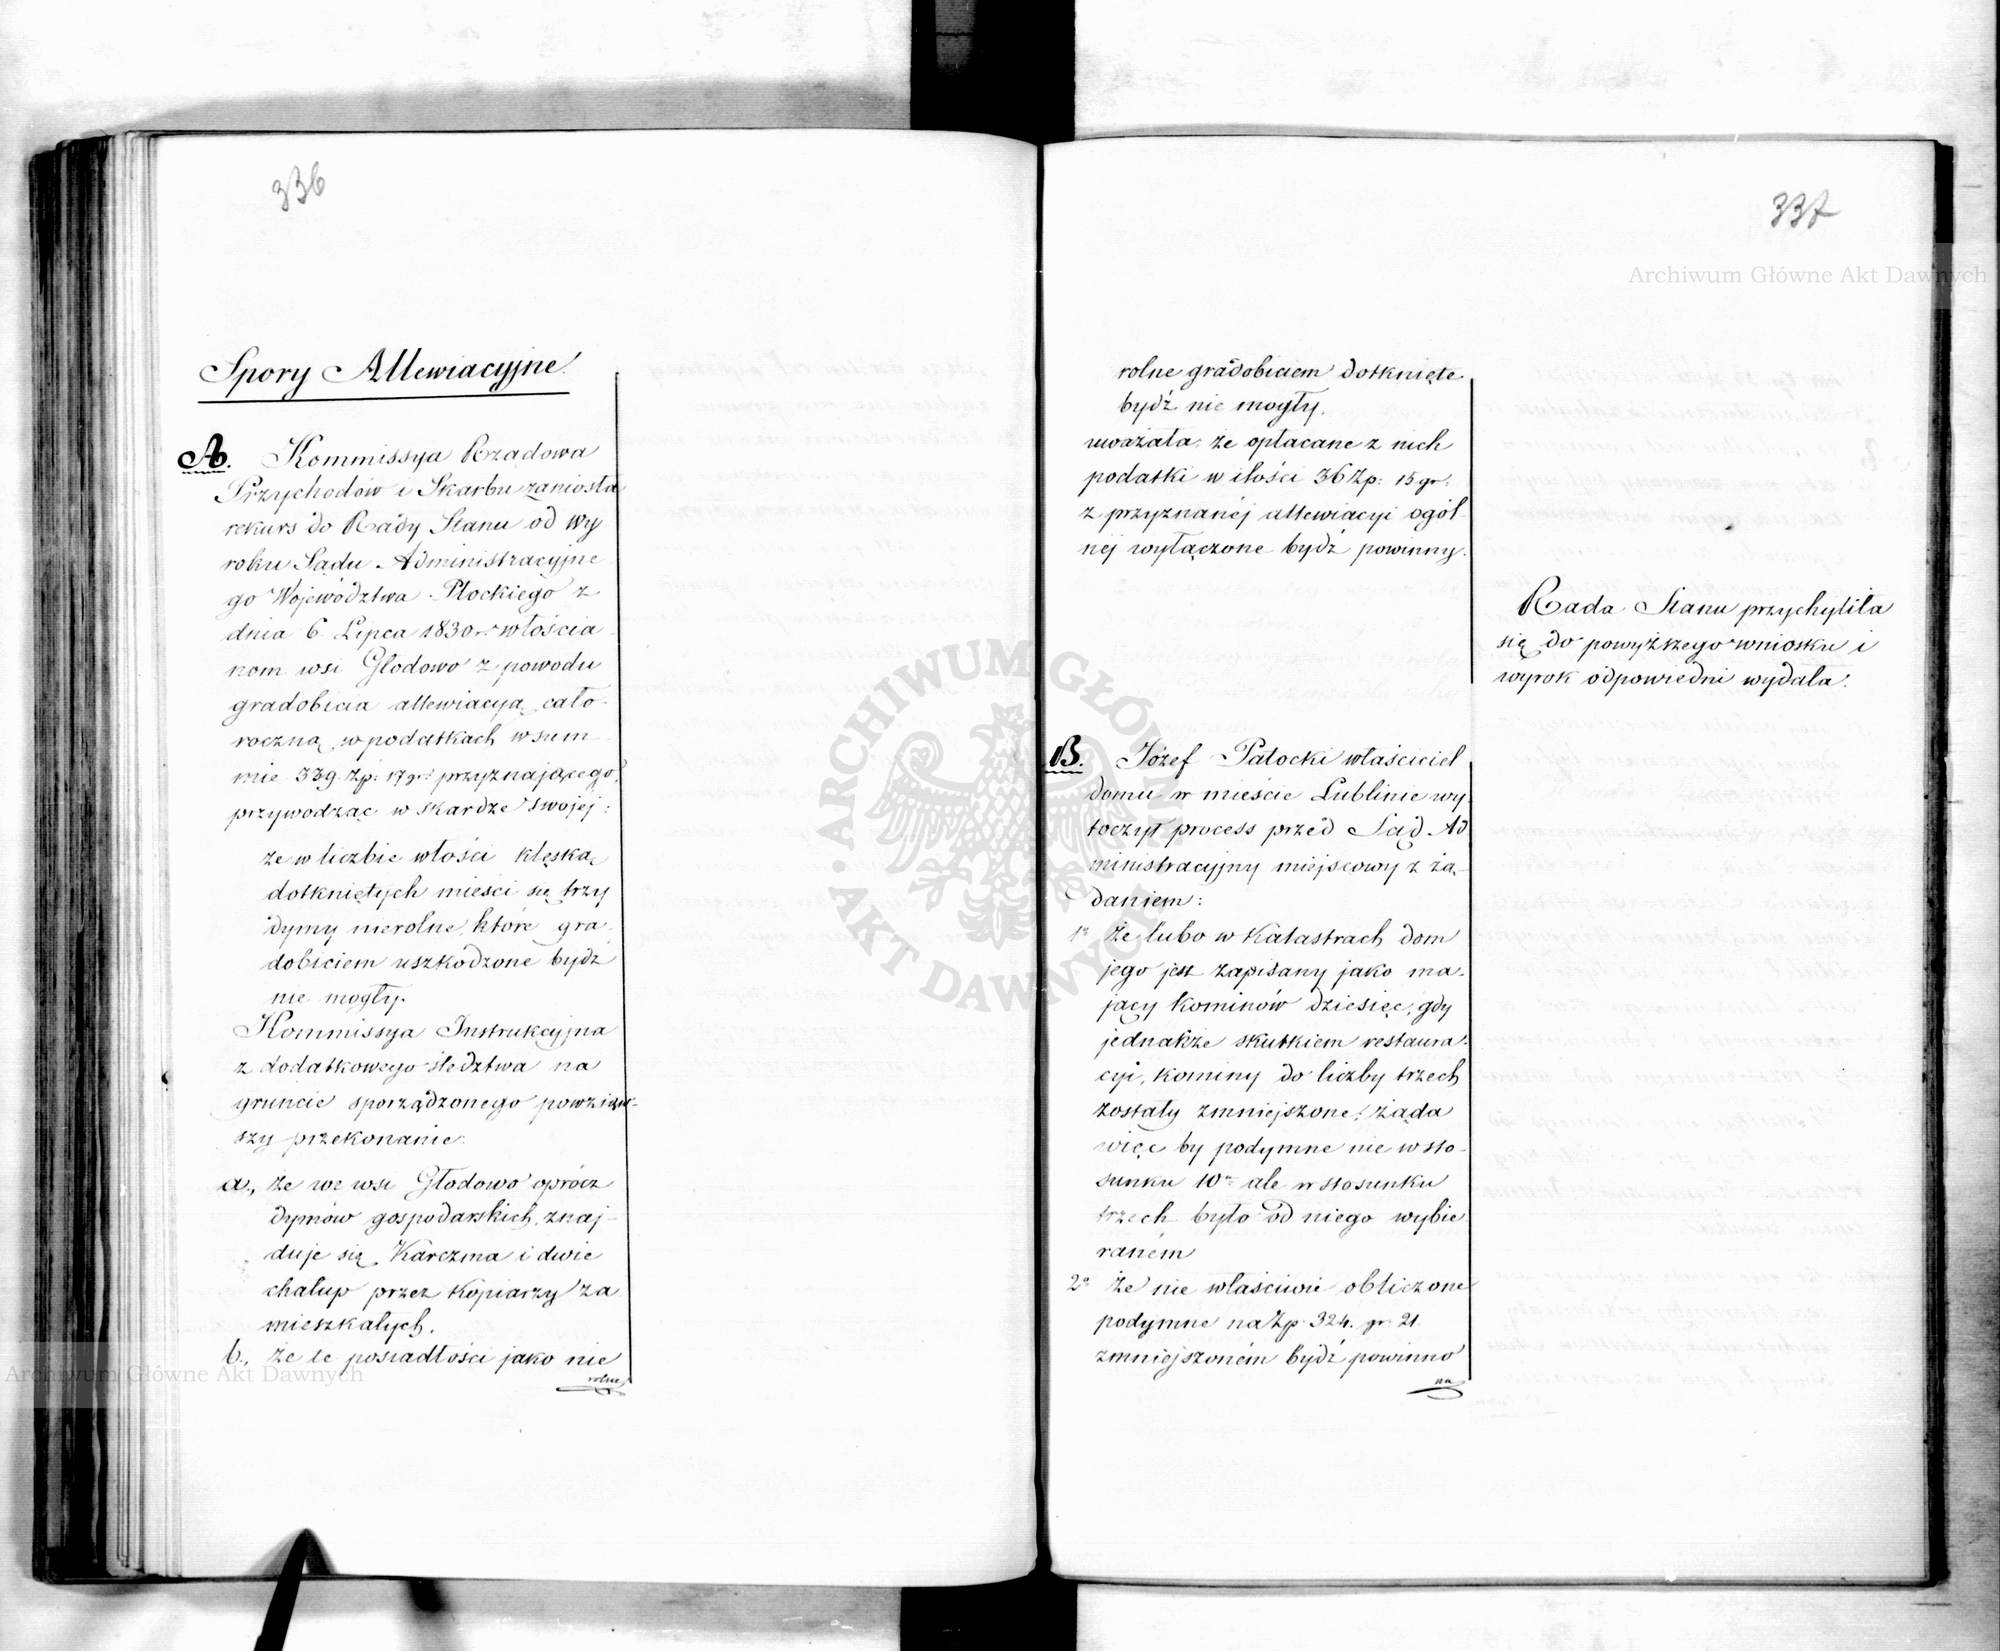 336
Spory Allewiacyjne.
A. Kommissya Rządowa
Przychodów i Skarbu zaniosła
rekurs do Rady Stanu od wy
roku Sądu Administracyjne
go Województwa Płockiego z
dnia 6 Lipca 1830 r. włościa
nom wsi Głodowo z powodu
gradobicia allewiacyą cało-
roczną w podatkach w sum
mie 339 Zp: 17 gr: przyznającego,
przywodząc w skardze swojej:
że w liczbie włości klęską
dotkniętych mieści się trzy
dymy nierolne, które gra-
dobiciem uszkodzone bydź
nie mogły.
Kommissya Instrukcyjna
z dodatkowego śledztwa na
gruncie sporządzonego powziąw-
szy przekonanie:
a., że we wsi Głodowo oprócz
dymów gospodarskich, znaj-
duje się Karczma i dwie
chalup przez Kopiarzy za
mieszkałych.
b., że te posiadłości jako nie
rolne
337
rolne gradobiciem dotknięte
bydź nie mogły.
uważała: że opłacane z nich
podatki w ilości 36 Zp: 15 gr:
z przyznanéj allewiacyi ogól-
néj wyłączone bydź powinny.
Rada Stanu przychyliła
się do powyższego wniosku i
wyrok odpowiedni wydała.
B. Józef Patocki właściciel
domu w mieście Lublinie wy-
toczył process przed Sąd Ad
ministracyjny miejscowy z żą-
daniem:
1o Że lubo w Katastrach dom
jego jest zapisany jako ma-
jący kominów dziesięć, gdy
jednakże skutkiem restaura-
cyi, kominy do liczby trzech
zostały zmniejszone; żąda
więc by podymne nie w sto-
sunku 10u ale w stosunku
trzech było od niego wybie
raném
2o Że nie właściwie obliczone
podymne na Zp. 324. gr. 21.
zmniejszoném bydź powinno
na
Archiwum Główne Akt Dawnych
Archiwum Główne Akt Dawnych
ARCHIWUM GŁÓWNE · AKT DAWNYCH ·